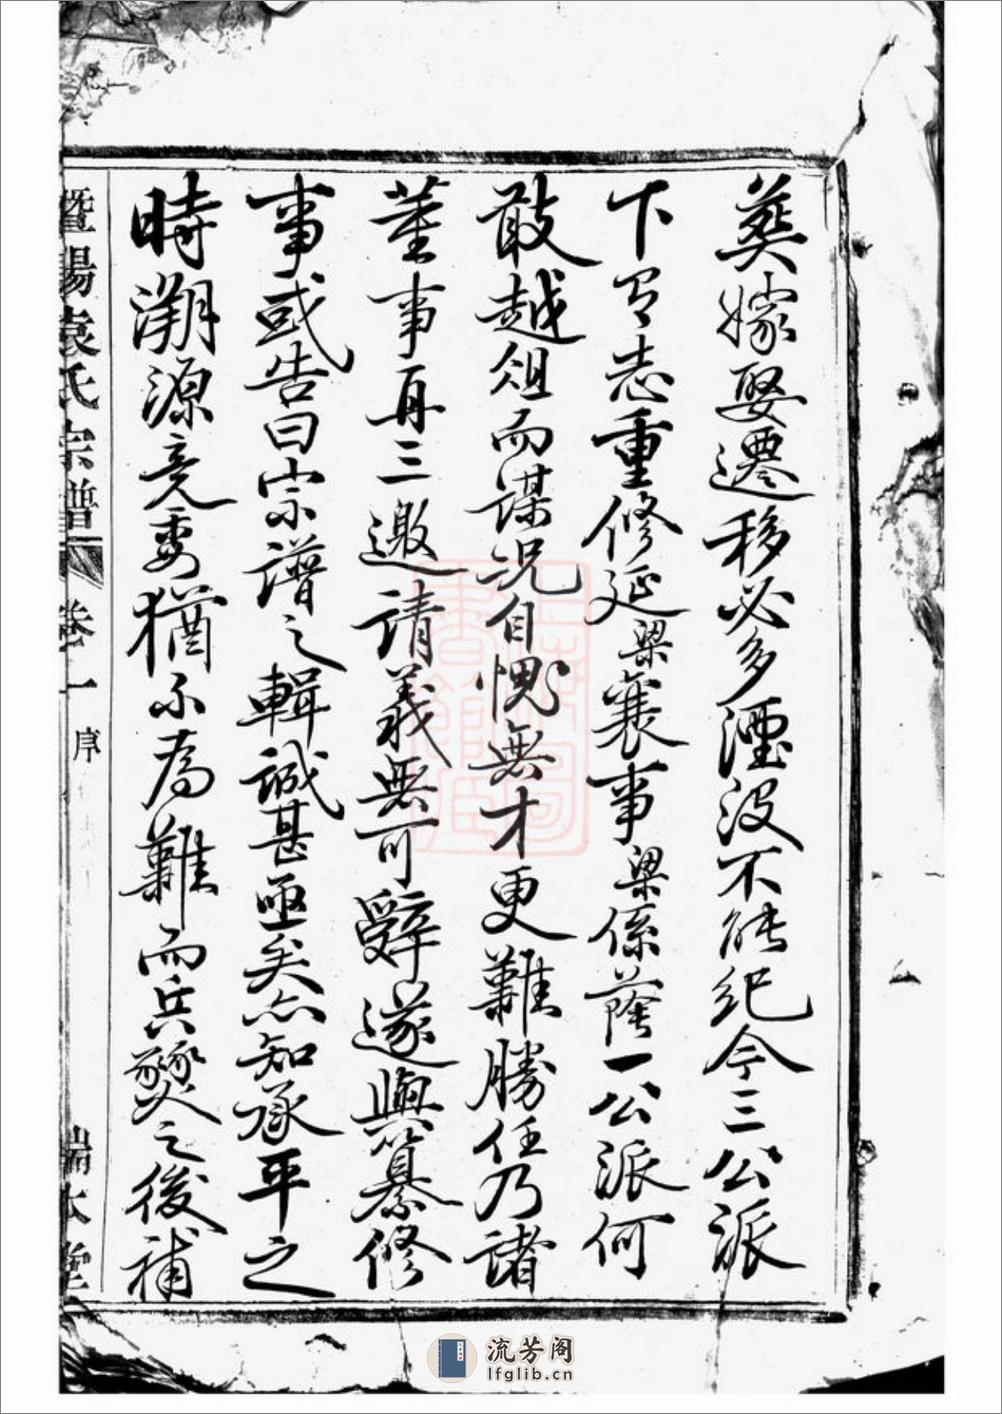 葬嫁娶遷移必多湮沒不能紀今三公派
下有志重修延梁襄事梁係蔭一公派何
敢越俎而謀況自愧無才更難勝任乃諸
董事再三邀請義無可辭遂與纂修
事或告曰宗譜之輯誠甚亟矣亦知承平之
時溯源竟委猶不為難而兵燹之後補
暨陽袁氏宗譜 卷一 序 瑞本堂
流芳阁
lfglib.cn